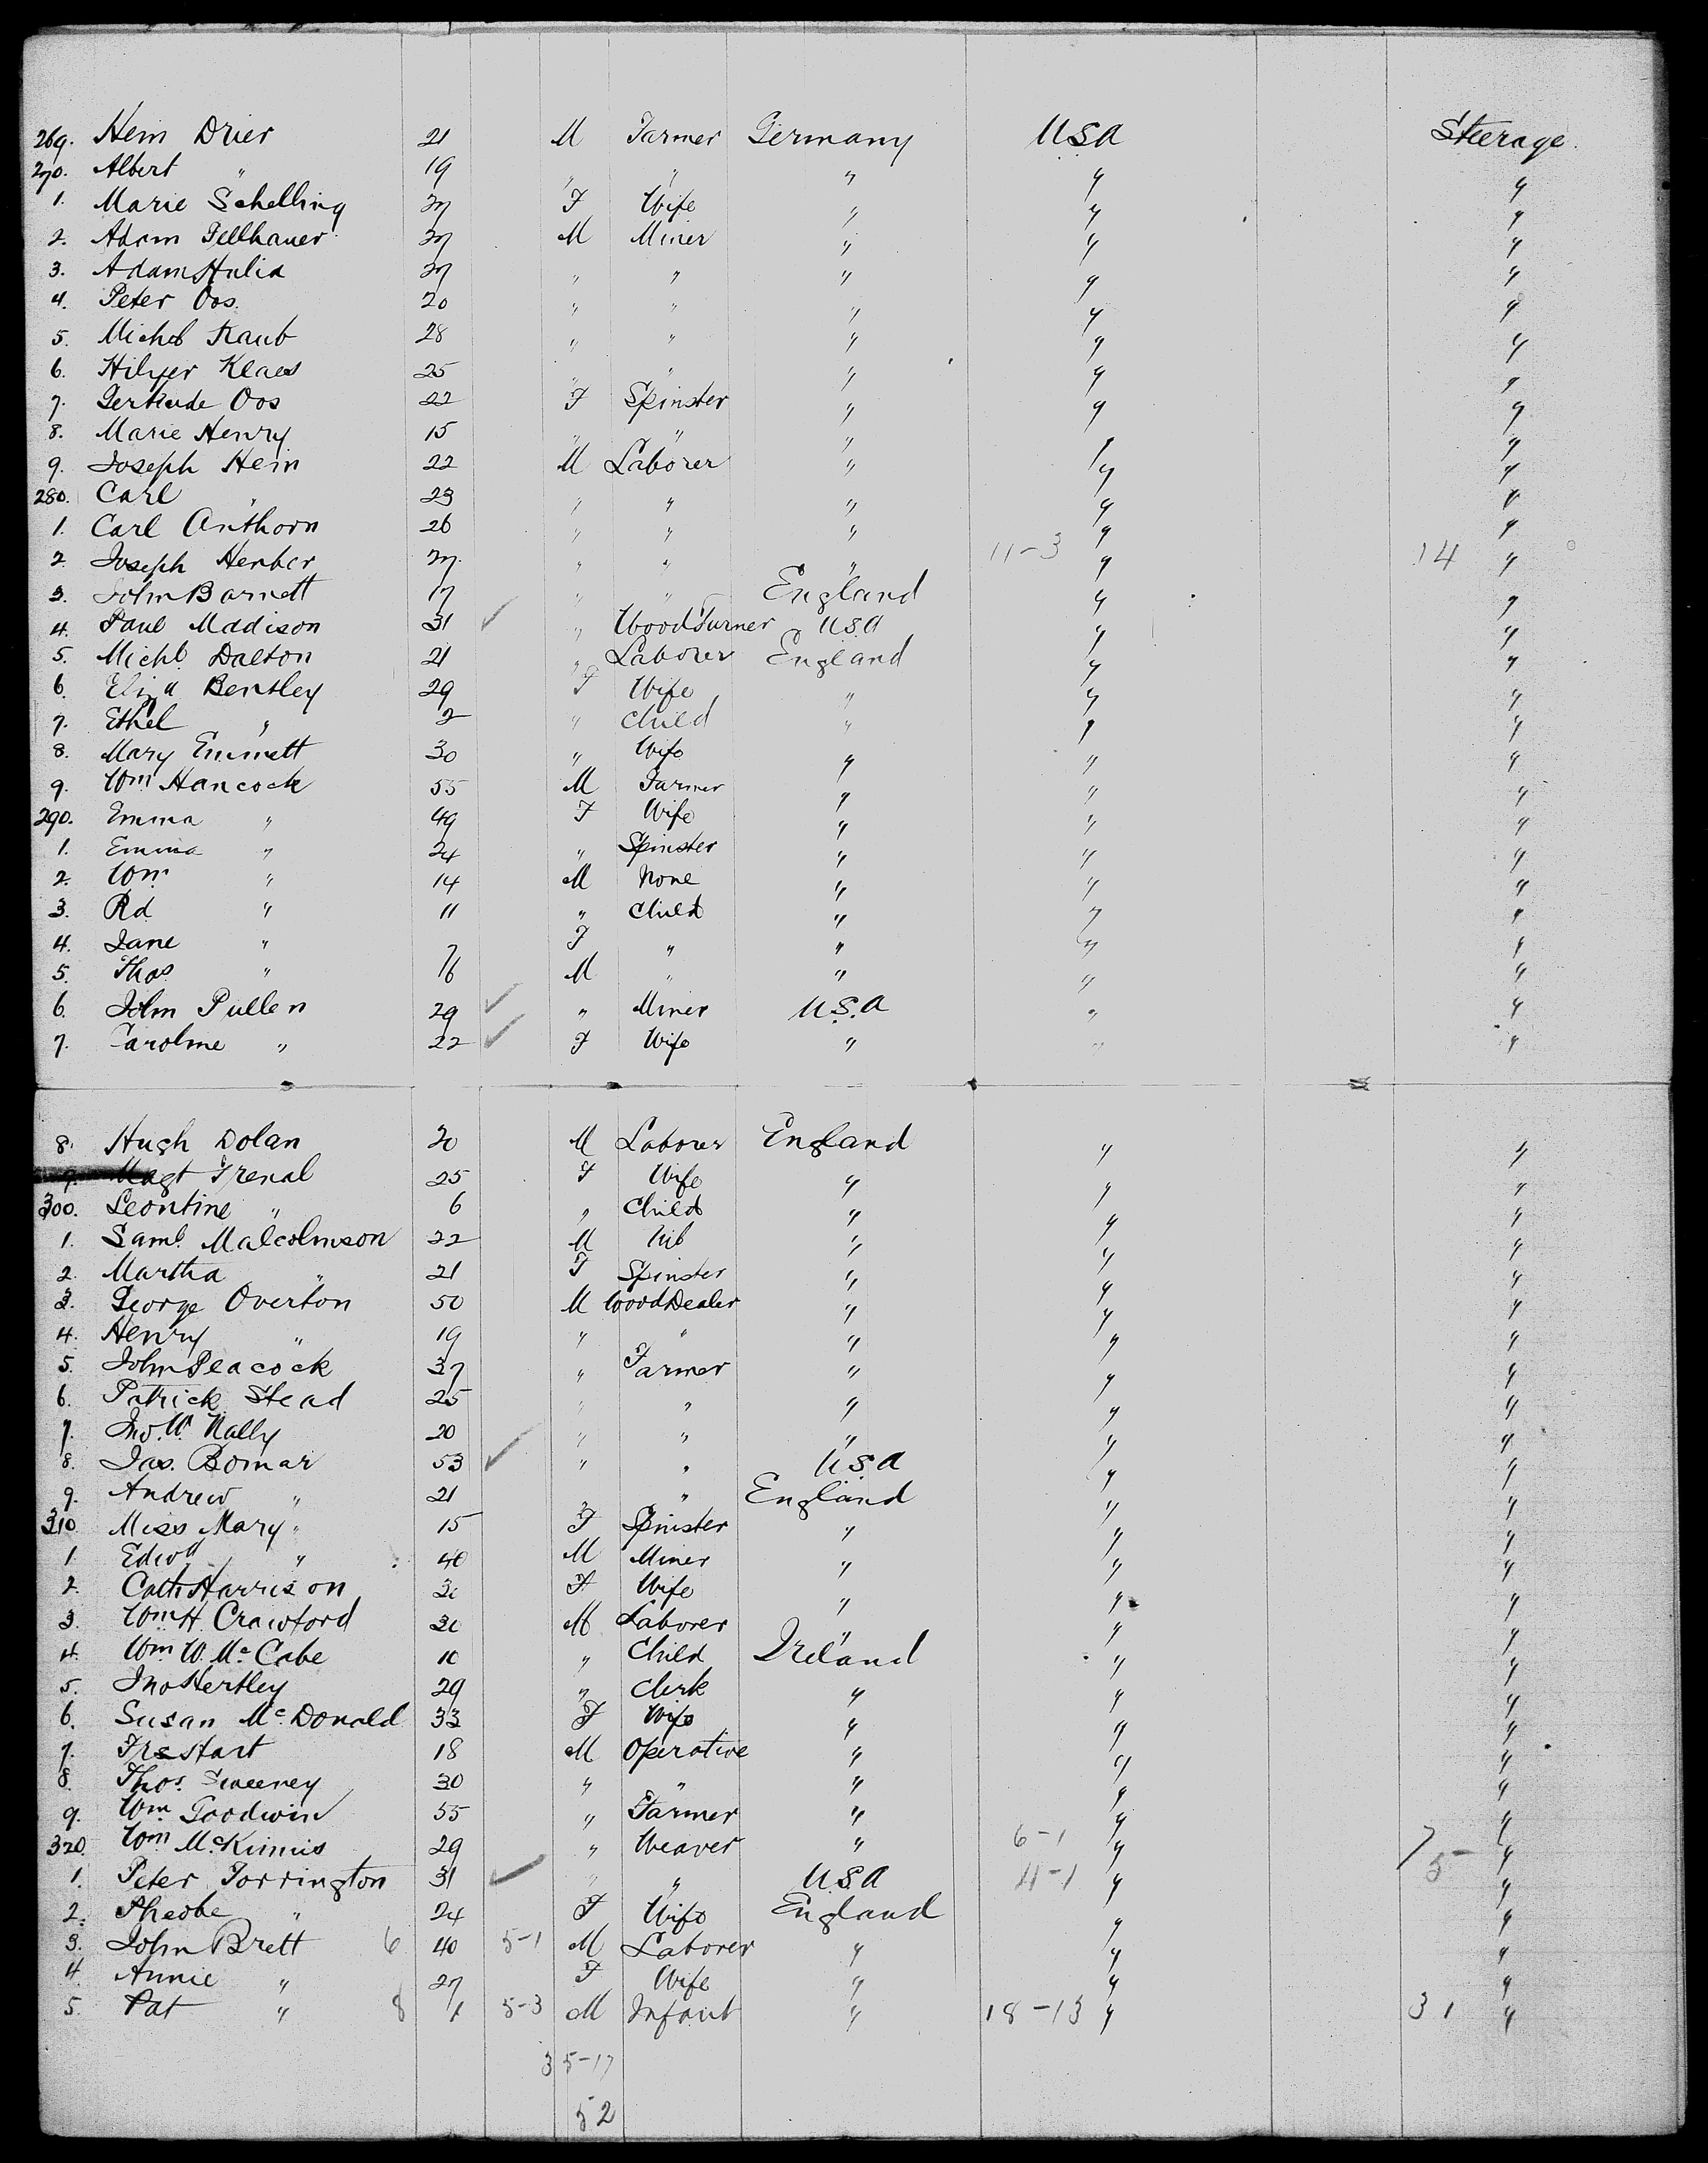 269. Hein Drier 21 M Farmer Germany USA Steerage
270. Albert " 19 " " " " "
1. Marie Schelling 27 F Wife " " "
2. Adam Fellhauer 27 M Miner " " "
3. Adam Hulia 27 " " " " "
4. Peter Oos. 20 " " " " "
5. Michl Raub 28 " " " " "
6. Hilger Klaes 25 " " " " "
7. Gertrude Oos 22 F Spinster " " "
8. Marie Henry 15 " " " " "
9. Joseph Hein 22 M Laborer " " "
280. Carl " 23 " " " " "
1. Carl Anthorn 26 " " " " "
2. Joseph Herber 27 " " " 11-3 " 14 "
3. John Barnett 17 " " England " "
4. Paul Maddison 31 ✓ " Wood Turner USA " "
5. Michl. Dalton 21 " Laborer England " "
6. Eliza Bentley 29 F Wife " " "
7. Ethel " 2 " Child " " "
8. Mary Emmett 30 " Wife " " "
9. Wm Hancock 55 M Farmer " " "
290. Emma " 49 F Wife " " "
1. Emma " 24 " Spinster " " "
2. Wm " 14 M None " " "
3. Rd " 11 " Child " " "
4. Jane " 7 F " " " "
5. Thos " 6 M " " " "
6. John Pullen 29 ✓ " Miner U.S.A " "
7. Caroline " 22 ✓ F Wife " " "
8. Hugh Dolan 20 M Laborer England " "
9. Magt Frenal 25 F Wife " " "
300. Leontine " 6 " Child " " "
1. Saml. Malcolmson 22 M " " "
2. Martha " 21 F Spinster " " "
3. George Overton 50 M Wood Dealer " " "
4. Henry " 19 " " " " "
5. John Peacock 37 " Farmer " " "
6. Patrick Stead 25 " " " " "
7. Jno. W. Nally 20 " " " " "
8. Jas. Bomar 53 ✓ " " U.S.A " "
9. Andrew " 21 " " England " "
310 Miss Mary " 15 F Spinster " " "
1. Edwd " 40 M Miner " " "
2. Cath Harrison 30 F Wife " " "
3. Wm H. Crawford 20 M Laborer " " "
4. Wm W. Mc Cabe 10 " Child Ireland " "
5. Jno Hertley 29 " Clerk " " "
6. Susan Mc Donald 33 F Wife " " "
7. Hart 18 M Operative " " "
8. Thos. Sweeney 30 " " " " "
9. Wm Goodwin 55 " Farmer " " "
320. Wm McKinnis 29 " Weaver " 6-1 " 7 "
1. Peter Torrington 31 ✓ " " U.S.A 4-1 " 5 "
2. Pheobe " 24 F Wife England " "
3. John Brett 6 40 5-1 M Laborer " " "
4. Annie " 27 F Wife " " "
5. Pat " 8 1 5-3 M Infant " 18-13 " 31 "
35-17
52